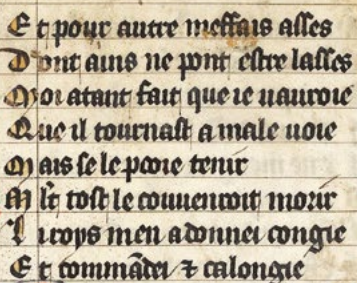 E t pour autre meffais asses
D ont ains ne pont estre lasses
M oi atant fait que ie uauroie
Q ue il tournast a male uoie
M ais se le pooie tenir
M lt tost le couuenroit morir
L i roys men a donnei congie
E t commādei ⁊ calongie